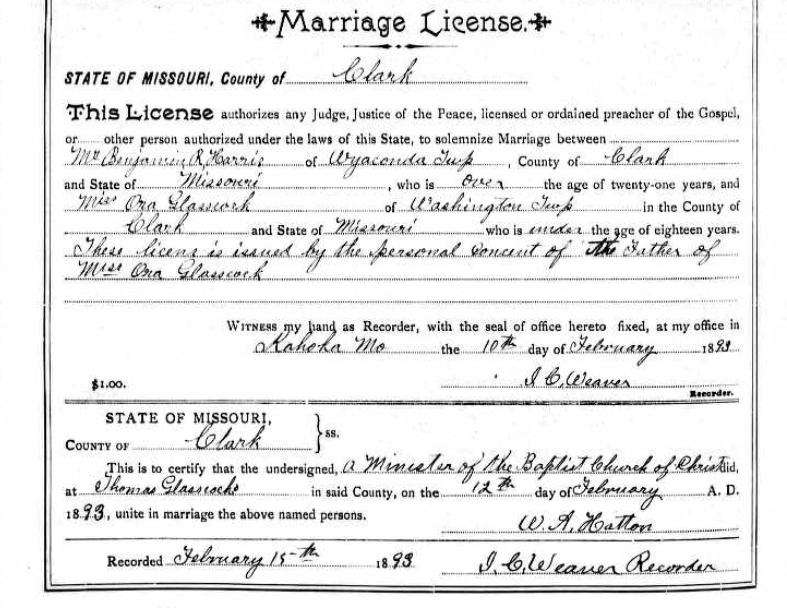 Marriage License.
STATE OF MISSOURI, County of Clark
This License authorizes any Judge, Justice of the Peace, licensed or ordained preacher of the Gospel,
or other person authorized under the laws of this State, to solemnize Marriage between
Mr Benjamin R. Harris of Wyaconda Twp, County of Clark
and State of Missouri, who is over the age of twenty-one years, and
Miss Ona Glasscock of Washington Twp in the County of
Clark and State of Missouri who is under the age of eighteen years.
These licens is issued by the personal concent of the Father of
Miss Ona Glasscock
WITNESS my hand as Recorder, with the seal of office hereto fixed, at my office in
Kahoka Mo the 10th day of February 1893
$1.00. I. C. Weaver
Recorder.
STATE OF MISSOURI,
COUNTY OF Clark } ss.
This is to certify that the undersigned, a Minister of the Baptist Church of Christ did,
at Thomas Glasscocks in said County, on the 12th day of February A. D.
1893, unite in marriage the above named persons.
W. A. Hatton
Recorded February 15th 1893 I. C. Weaver Recorder